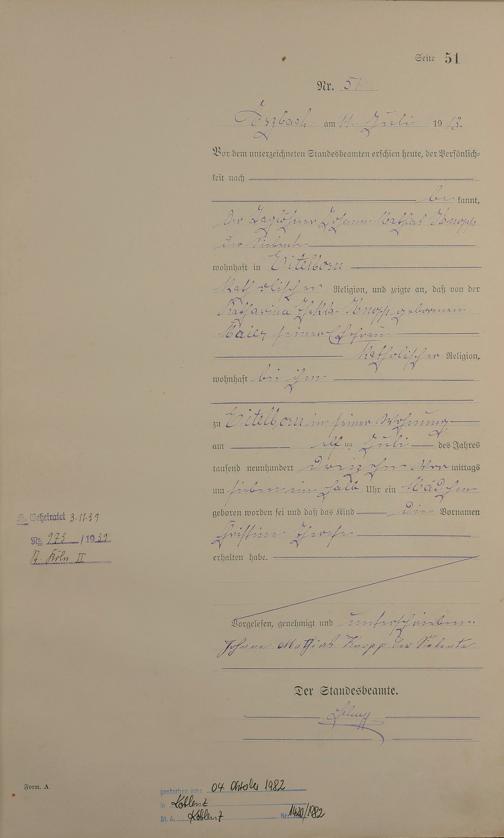 Seite 51
Nr. 51
Arzbach am 11. Juli 1913.
Vor dem unterzeichneten Standesbeamten erschien heute, der Persönlich-
keit nach
be kannt,
der Taglöhner Johann Mathias Knopp
der Siebente
wohnhaft in Eitelborn
katholischer Religion, und zeigte an, daß von der
Katharina Thekla Knopp geborenen
seiner Ehefrau
katholischer Religion,
wohnhaft bei ihm
zu Eitelborn in seiner Wohnung
am elften Juli des Jahres
tausend neunhundert dreizehn Vor mittags
um sieben ein halb Uhr ein Mädchen
geboren worden sei und daß das Kind die Vornamen
Christine
erhalten habe.
Vorgelesen, genehmigt und unterschrieben
Johann Mathias Knopp der Siebente
Der Standesbeamte.
Geheiratet 3.11.39
Nr. 973 /1939
Köln II
Form. A.
gestorben am: 04. Oktober 1982
in Koblenz
St. A. Koblenz Nr. 1420/1982